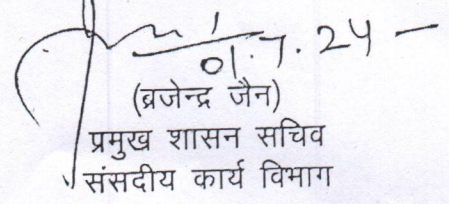 01.7.24
(ब्रजेन्द्र जैन)
प्रमुख शासन सचिव
संसदीय कार्य विभाग